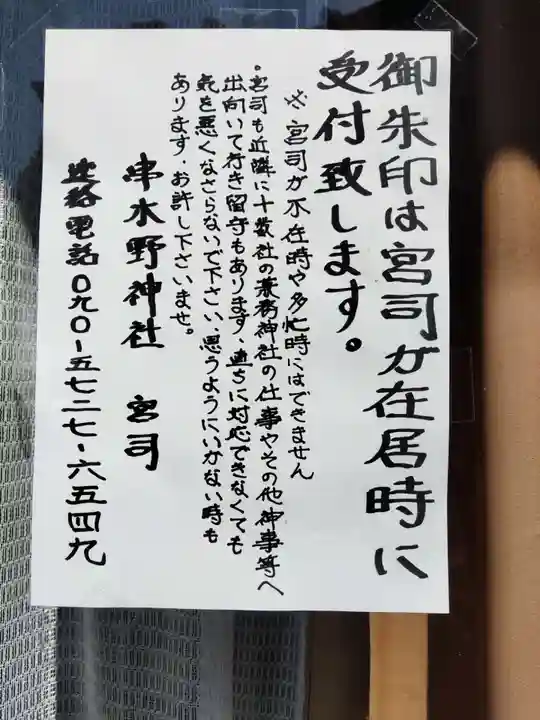 御朱印は宮司が在居時に
受付致します。
※宮司が不在時や多忙時にはできません
・宮司も近隣に十数社の兼務神社の仕事やその他神事等へ
出向いて行き留守もあります、直ちに対応できなくても
気を悪くなさらないで下さい、思うようにいかない時も
あります。お許し下さいませ。
串水野神社 宮司
連絡電話〇九〇-五七二七-六五四九